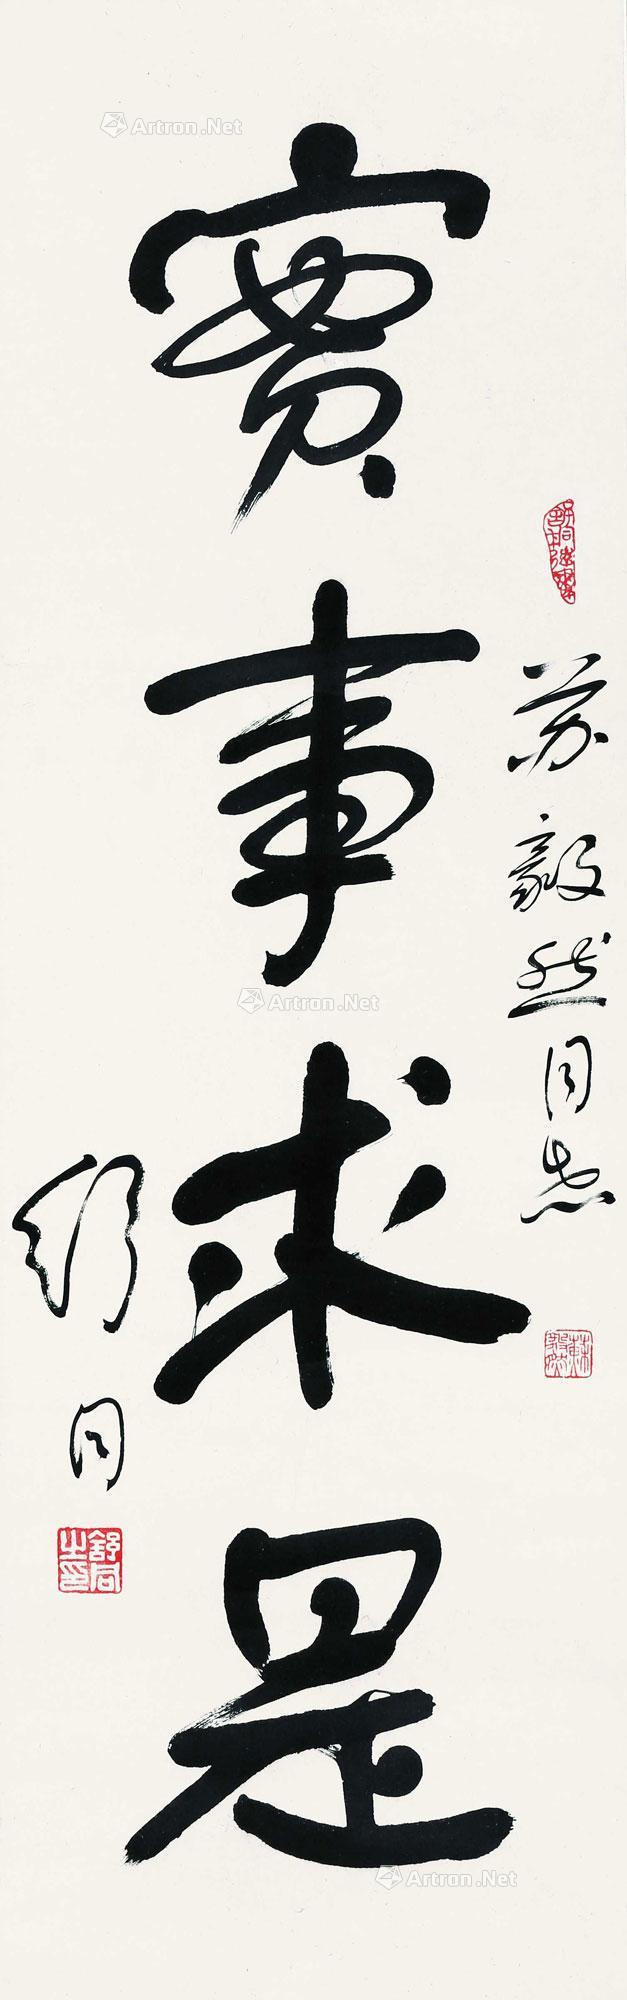 苏毅然同志
實事求是
舒同
舒同之印
Artron.Net
Artron.Net
Artron.Net